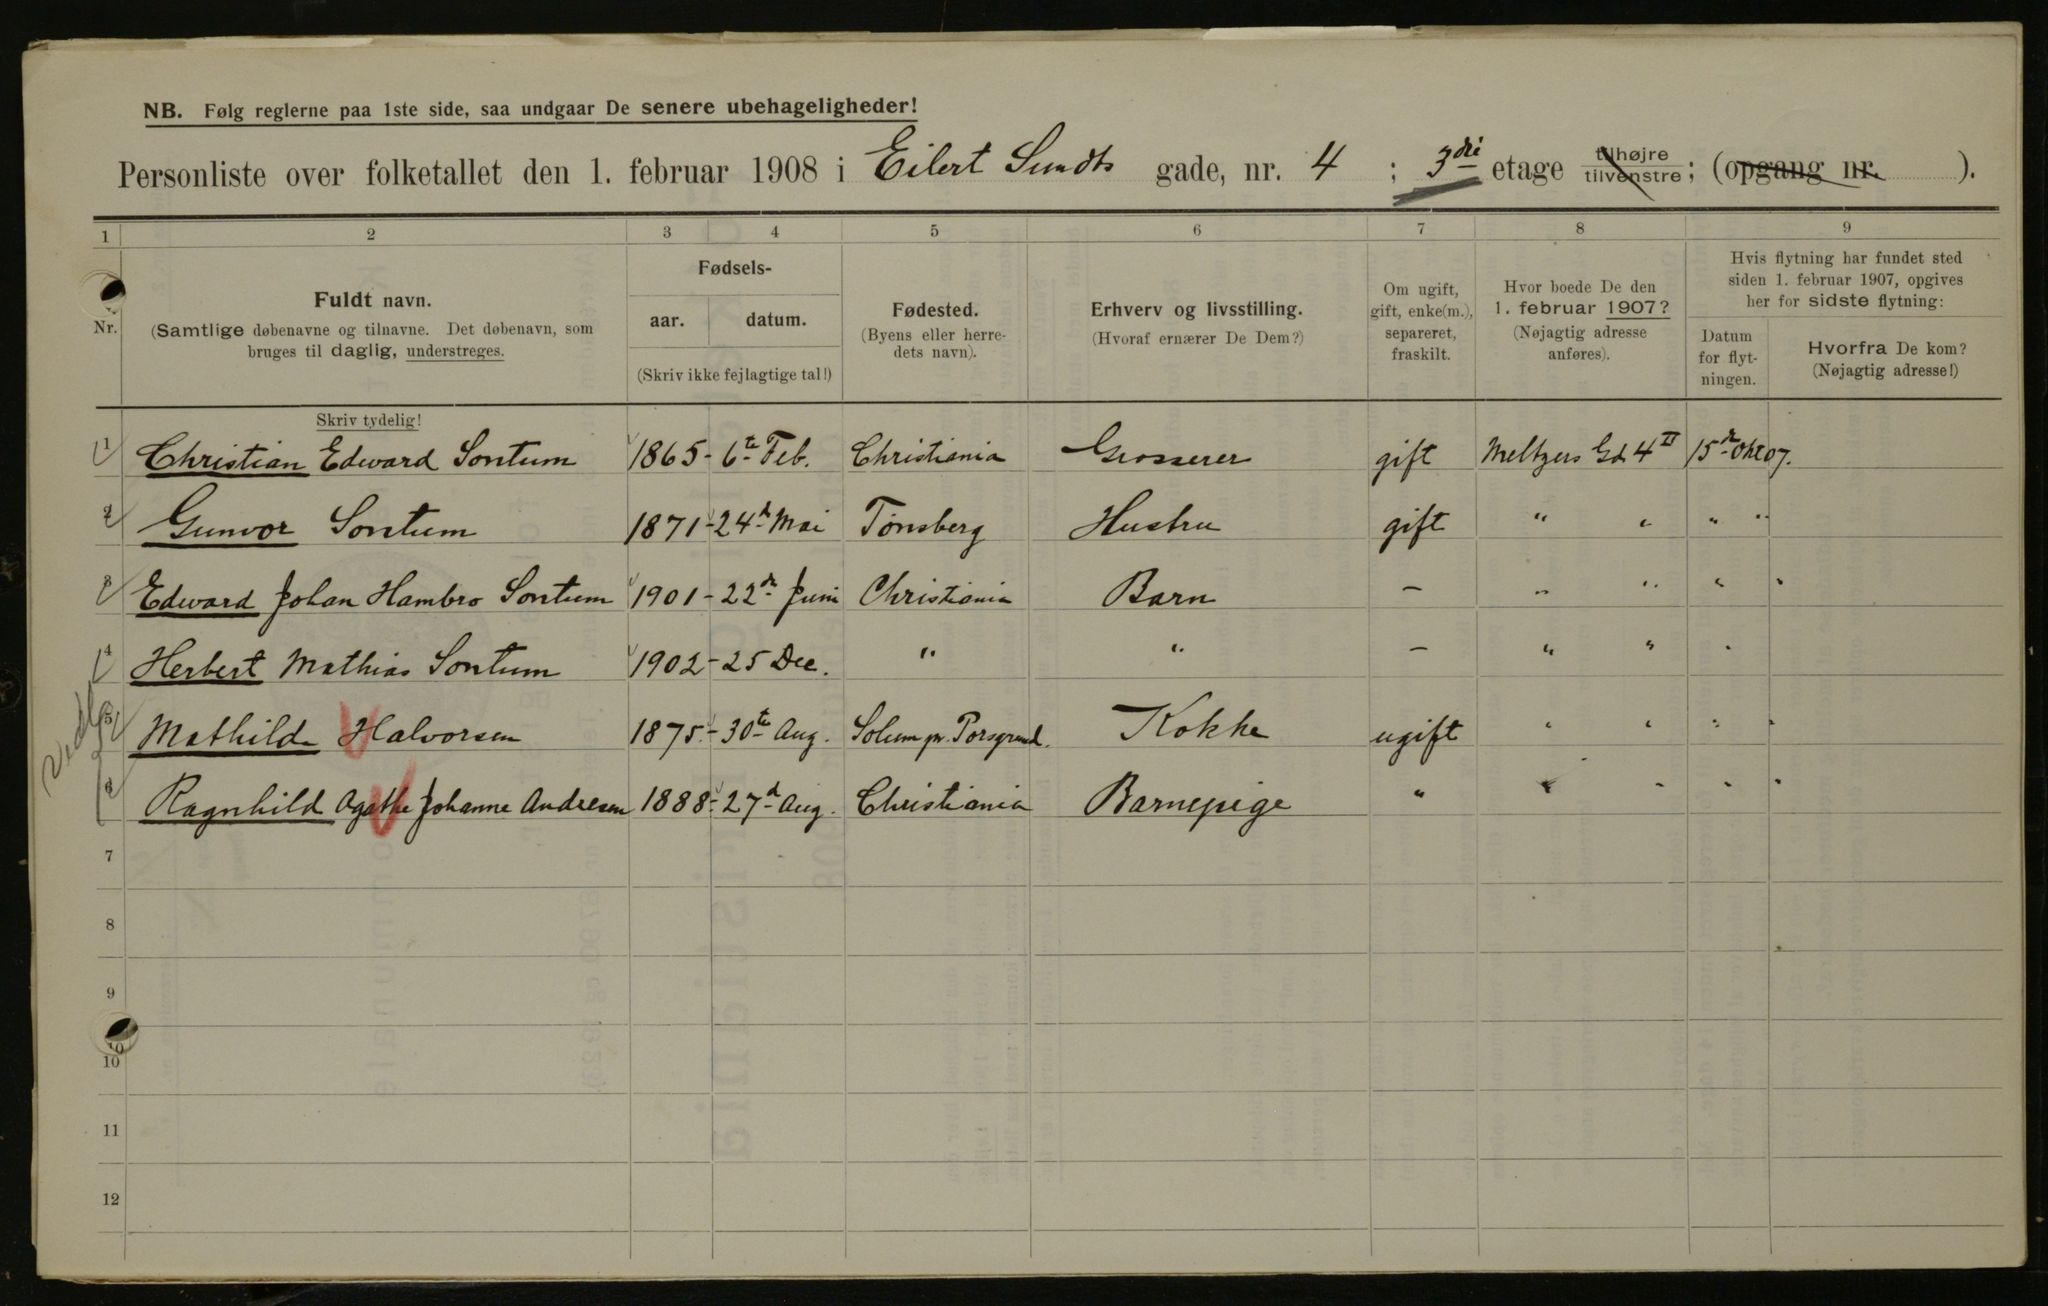 NB. Følg reglerne paa 1ste side, saa undgaar De senere ubehageligheder!
Personliste over folketallet den 1. februar 1908 i Eilert Sundts gade, nr. 4 ; 3die etage tilhøjre tilvenstre ; (opgang nr. ).
1 2 3 4 5 6 7 8 9
Nr.
Fuldt navn.
(Samtlige døbenavne og tilnavne. Det døbenavn, som
bruges til daglig, understreges.
Skriv tydelig!
Fødsels-
aar. datum.
(Skriv ikke fejlagtige tal!)
Fødested.
(Byens eller herre-
dets navn).
Erhverv og livsstilling.
(Hvoraf ernærer De Dem?)
Om ugift,
gift, enke(m.),
separeret,
fraskilt.
Hvor boede De den
1. februar 1907?
(Nøjagtig adresse
anføres).
Hvis flytning har fundet sted
siden 1. februar 1907, opgives
her for sidste flytning:
Datum
for flyt-
ningen.
Hvorfra De kom?
(Nøjagtig adresse!)
1 Christian Edward Sontum 1865 - 6te Feb. Christiania Grosserer gift Meltzers Gd. 4 II 15de Okt 07.
2 Gunvor Sontum 1871 - 24de Mai Tønsberg Hustru gift " " " "
3 Edward Johan Hambro Sontum 1901 - 22de Juni Christiania Barn - " " " "
4 Herbert Mathias Sontum 1902 - 25 Dec. " " - " " "
5 Mathilde Halvorsen 1875. - 30te Aug. Solum pr. Porsgrund. Kokke ugift " " " "
6 Ragnhild Agathe Johanne Andresen 1888 - 27d Aug. Christiania Barnepige " " " " "
7
8
9
10
10
11
12